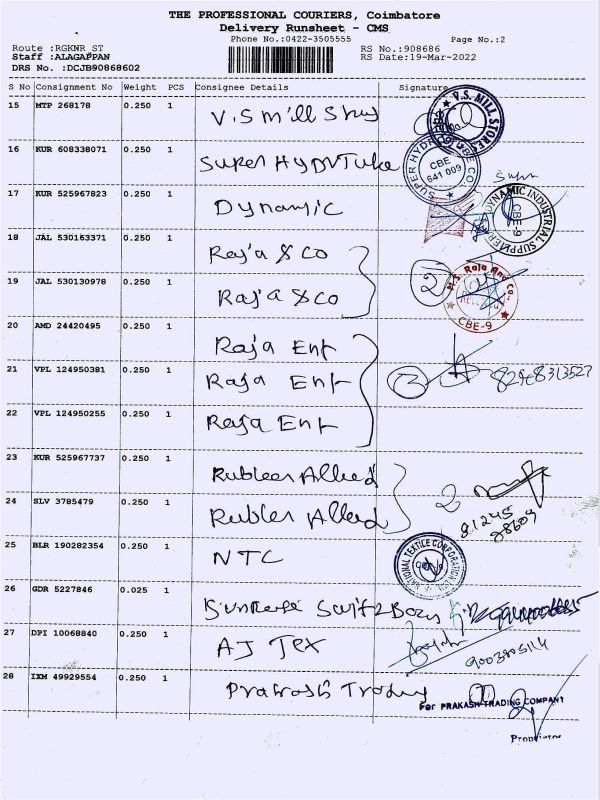 THE PROFESSIONAL COURIERS, Coimbatore
Delivery Runsheet - CMS
Phone No.:0422-3505555 Page No.:2
Route :RGKNR_ST RS No.:908686
Staff :ALAGAPPAN RS Date:19-Mar-2022
DRS No. :DCJB90868602
S No Consignment No Weight PCS Consignee Details Signature
15 MTP 268178 0.250 1 V.S Mill
V.S. MILL STORES
16 KUR 608338071 0.250 1 Super Hyd
SUPER HYD CBE CBE 641 009
17 KUR 525967823 0.250 1 Dynamic
DYNAMIC INDUSTRIAL SUPPLIER CBE-9
18 JAL 530163371 0.250 1 Raja & Co
19 JAL 530130978 0.250 1 Raja & Co 2
M.S. Raja And Co., CBE-9
20 AMD 24420495 0.250 1 Raja Ent
21 VPL 124950381 0.250 1 Raja Ent
22 VPL 124950255 0.250 1 Raja Ent
23 KUR 525967737 0.250 1 Rubber Allied
24 SLV 3785479 0.250 1 Rubber Allied 2
81245
25 BLR 190282354 0.250 1 NTC
NATIONAL TEXTILE CORPORATION
26 GDR 5227846 0.025 1
27 DPI 10068840 0.250 1 AJ Tex
28 IXM 49929554 0.250 1 Prakash Trading
For PRAKASH TRADING COMPANY
Proprietor